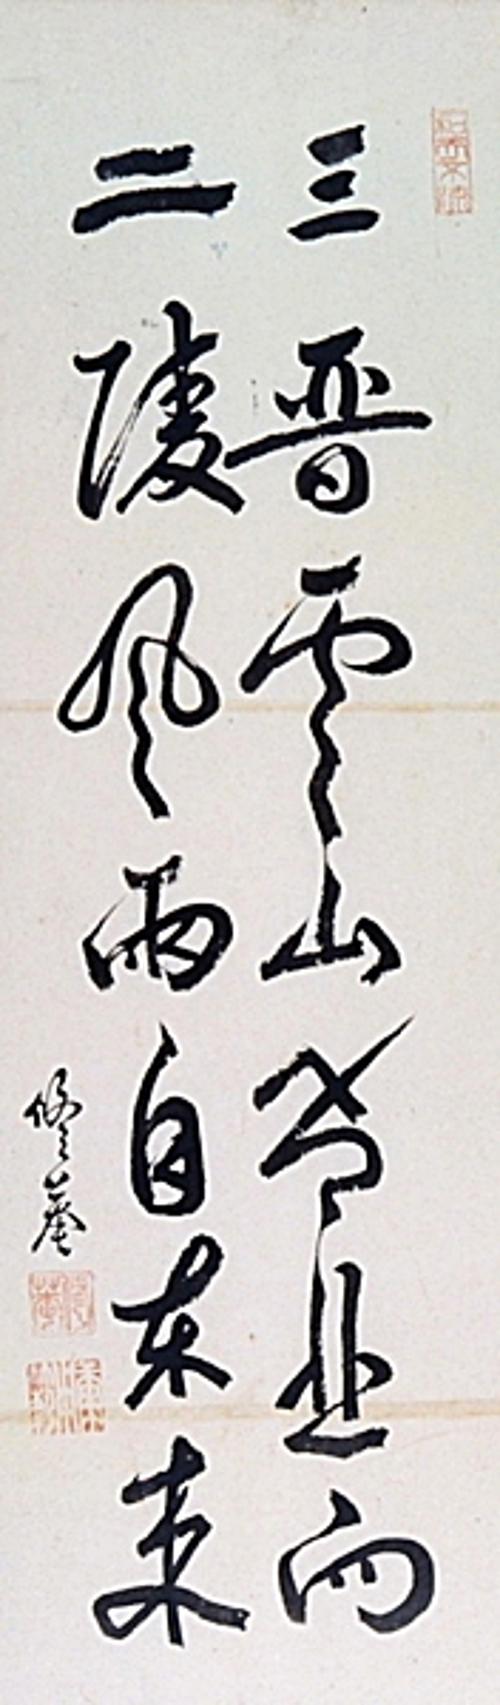 三晉雲山皆北向
二陵風雨自東來
修菴